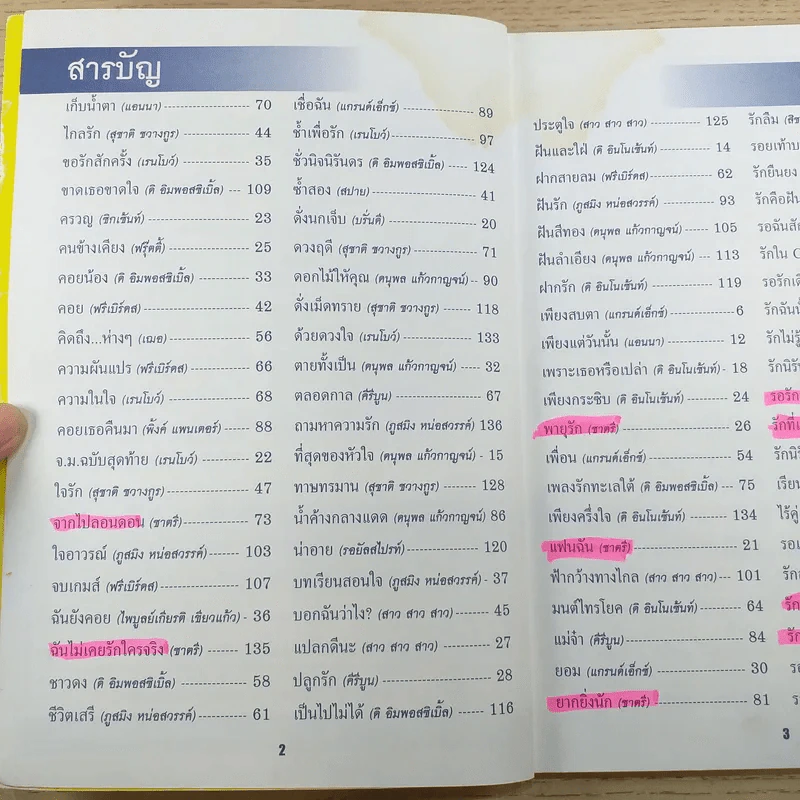 สารบัญ
เก็บน้ำตา (แอนนา) 70
ไกลรัก (สุชาติ ชวางกูร) 44
ขอรักสักครั้ง (เรนโบว์) 35
ขาดเธอขาดใจ (ดิ อิมพอสซิเบิ้ล) --- 109
ครวญ (ซิกเซ้นท์) 23
คนข้างเคียง (ฟรุ๊ตตี้) 25
คอยน้อง (ดิ อิมพอสซิเบิ้ล) 33
คอย (ฟรีเบิร์ดส) 42
คิดถึง...ห่างๆ (เฌอ) 56
ความผันแปร (ฟรีเบิร์ดส) 66
ความในใจ (เรนโบว์) 68
คอยเธอคืนมา (พิ้งค์ แพนเตอร์) 88
จ.ม.ฉบับสุดท้าย (เรนโบว์) 22
ใจรัก (สุชาติ ชวางกูร) 47
จากไปลอนดอน (ชาตรี) 73
ใจอาวรณ์ (ภูสมิง หน่อสวรรค์) 103
จบเกมส์ (ฟรีเบิร์ดส) 107
ฉันยังคอย (ไพบูลย์เกียรติ เขียวแก้ว) - 36
ฉันไม่เคยรักใครจริง (ชาตรี) 135
ชาวดง (ดิ อิมพอสซิเบิ้ล) 58
ชีวิตเสรี (ภูสมิง หน่อสวรรค์) 61
เชื่อฉัน (แกรนด์เอ็กซ์) 89
ช้ำเพื่อรัก (เรนโบว์) 97
ชั่วนิจนิรันดร (ดิ อิมพอสซิเบิ้ล) 124
ช้ำสอง (สปาย) 41
ดั่งนกเจ็บ (บรั่นดี) 20
ดวงฤดี (สุชาติ ชวางกูร) 71
ดอกไม้ให้คุณ (ดนุพล แก้วกาญจน์) - 90
ดั่งเม็ดทราย (สุชาติ ชวางกูร) 118
ด้วยดวงใจ (เรนโบว์) 133
ตายทั้งเป็น (ดนุพล แก้วกาญจน์) 32
ตลอดกาล (คีรีบูน) 67
ถามหาความรัก (ภูสมิง หน่อสวรรค์) 136
ที่สุดของหัวใจ (ดนุพล แก้วกาญจน์) - 15
ทาษทรมาน (สุชาติ ชวางกูร) 128
น้ำค้างกลางแดด (ดนุพล แก้วกาญจน์) 86
น่าอาย (รอยัลสไปรท์) 120
บทเรียนสอนใจ (ภูสมิง หน่อสวรรค์) - 37
บอกฉันว่าไง? (สาว สาว สาว) 45
แปลกดีนะ (สาว สาว สาว) 27
ปลูกรัก (คีรีบูน) 28
เป็นไปไม่ได้ (ดิ อิมพอสซิเบิ้ล) 116
2
ประตูใจ (สาว สาว สาว) 125
ฝันและใฝ่ (ดิ อินโนเซ้นท์) 14
ฝากสายลม (ฟรีเบิร์ดส) 62
ฝันรัก (ภูสมิง หน่อสวรรค์) 93
ฝันสีทอง (ดนุพล แก้วกาญจน์) 105
ฝันลำเอียง (ดนุพล แก้วกาญจน์) 113
ฝากรัก (ดิ อินโนเซ้นท์) 119
เพียงสบตา (แกรนด์เอ็กซ์) 6
เพียงแต่วันนั้น (แอนนา) 12
เพราะเธอหรือเปล่า (ดิ อินโนเซ้นท์) - 18
เพียงกระซิบ (ดิ อินโนเซ้นท์) 24
พายุรัก (ชาตรี) 26
เพื่อน (แกรนด์เอ็กซ์) 54
เพลงรักทะเลใต้ (ดิ อิมพอสซิเบิ้ล) 75
เพียงครึ่งใจ (ดิ อินโนเซ้นท์) 134
แฟนฉัน (ชาตรี) 21
ฟ้ากว้างทางไกล (สาว สาว สาว) 101
มนต์ไทรโยค (ดิ อินโนเซ้นท์) 64
แม่จ๋า (คีรีบูน) 84
ยอม (แกรนด์เอ็กซ์) 30
ยากยิ่งนัก (ชาตรี) 81
รักลืม
รักยืนยง
รักคือฝัน
รักใน
3